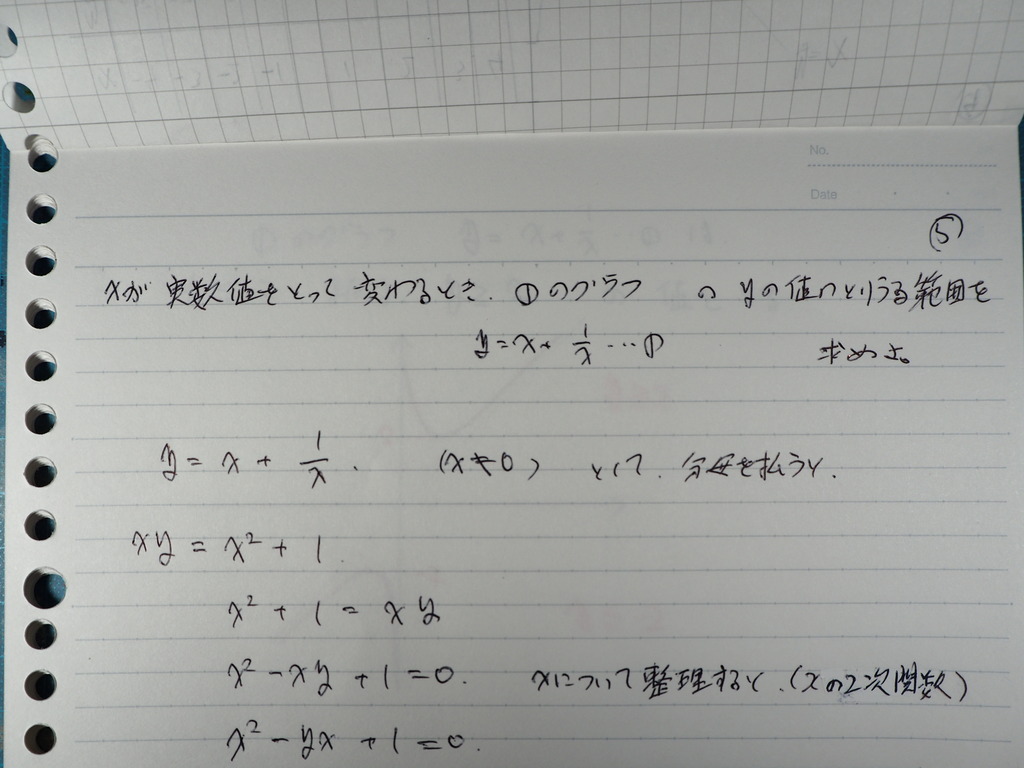 No.
Date
⑤
xが実数値をとって変わるとき、①のグラフ の yの値のとりうる範囲を
y=x+ 1/x …① 求めよ。
y = x + 1/x . (x≠0) として、分母を払うと、
xy = x² + 1
x² + 1 = xy
x² - xy + 1 = 0. xについて整理すると、(xの2次関数)
x² - yx + 1 = 0.